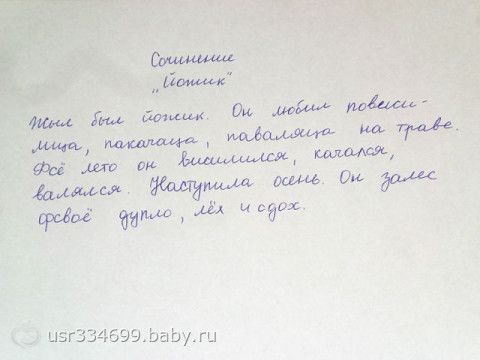 Сочинение
„Йожик"
Жыл был йожик. Он любил повесили-
лица, пакачаца, паваляца на траве.
Фсё лето он висилился, качался,
валялся. Наступила осень. Он залес
фсваё дупло, лёх и сдох.
usr334699.baby.ru